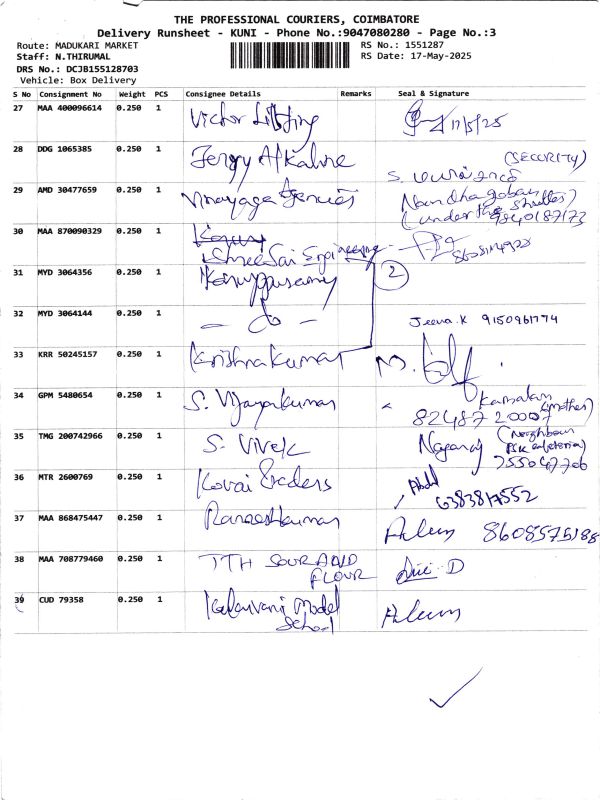 THE PROFESSIONAL COURIERS, COIMBATORE
Delivery Runsheet - KUNI - Phone No.:9047080280 - Page No.:3
Route: MADUKARI MARKET
Staff: N.THIRUMAL
DRS No.: DCJB155128703
Vehicle: Box Delivery
RS No.: 1551287
RS Date: 17-May-2025
S No Consignment No Weight PCS Consignee Details Remarks Seal & Signature
27 MAA 400096614 0.250 1 Victor 17/5/25
28 DDG 1065385 0.250 1 (SECURITY)
29 AMD 30477659 0.250 1 Vinayaga Agencies Nandhagopan
(under the 9840187173
30 MAA 870090329 0.250 1
Shree Sai Engineering
31 MYD 3064356 0.250 1 Karuppusamy 2
32 MYD 3064144 0.250 1 Jeeva.K 9150961774
33 KRR 50245157 0.250 1 Krishnakumar M.
34 GPM 5480654 0.250 1 S. Vijayakumar Kamalam (mother)
8248720007
35 TMG 200742966 0.250 1 S. Vivek Nagaraj (Neighbour
755047706
36 MTR 2600769 0.250 1 Kovai Traders Abdul
6383817552
37 MAA 868475447 0.250 1 Rameshkumar 8608575188
38 MAA 708779460 0.250 1 TTH SOUR AND
FLOUR
39 CUD 79358 0.250 1 Kalaivani Model
School